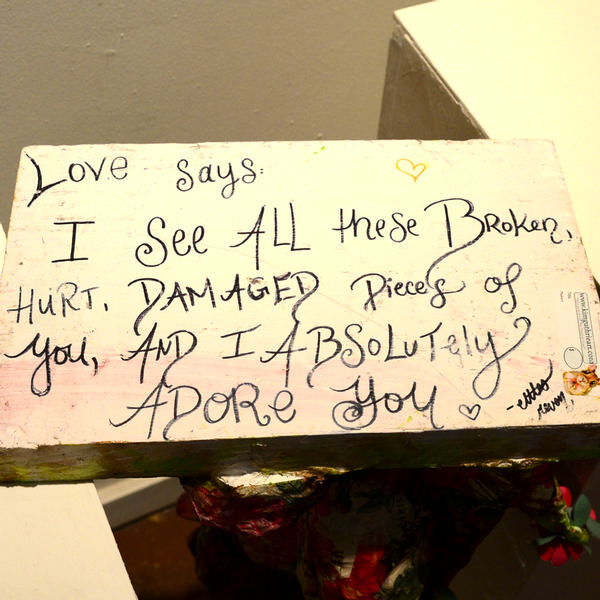 Love says:
I See ALL these BRoken,
HURT, DAMAGED pieces of
you, AND I ABSOLUTely
ADORe You